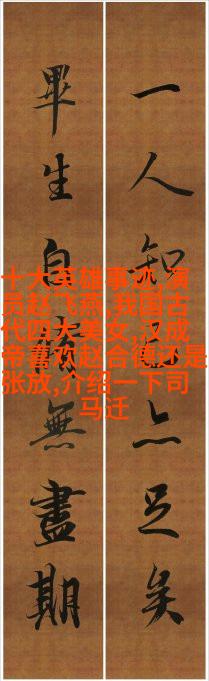 一人知己亦足矣
畢生自修無盡期
十大英雄事迹,演
员赵飞燕,我国古
代四大美女,汉成
帝喜欢赵合德还是
张放,介绍一下司
马迁